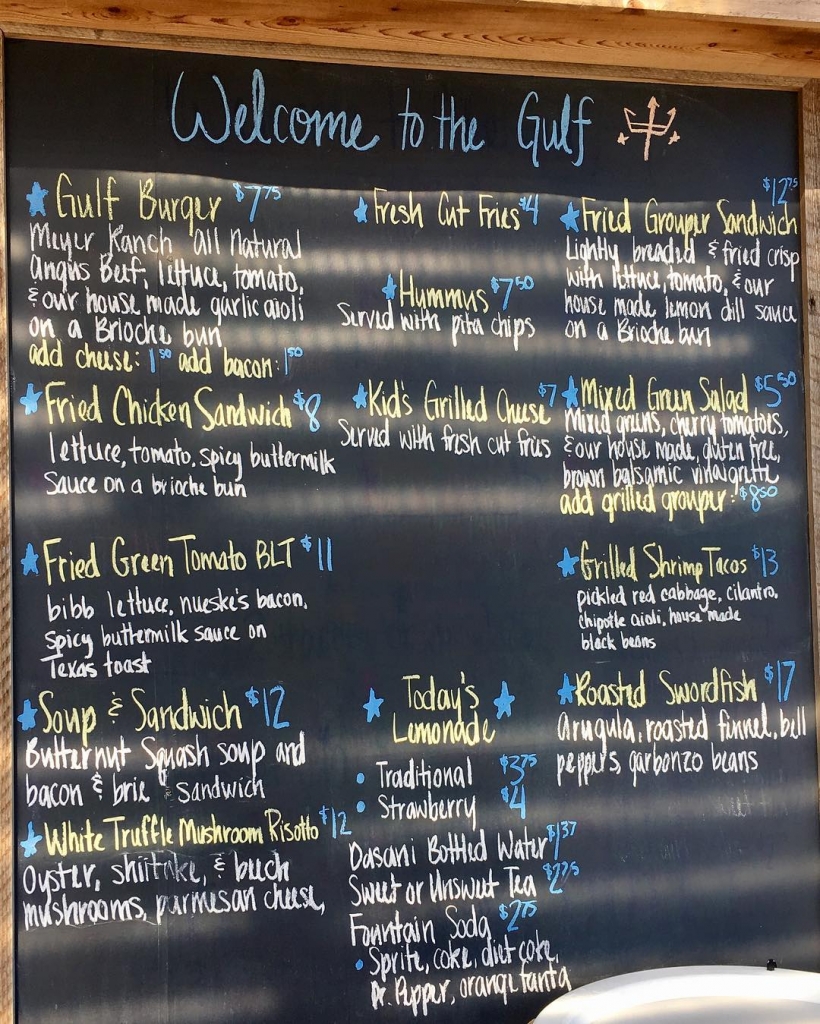 Welcome to the Gulf
Gulf Burger $7.75
Meyer Ranch all Natural
angus Beef, lettuce, tomato,
& our house made garlic aioli
on a Brioche bun
add cheese: 1.50 add bacon: 1.50
Fried Chicken Sandwich $8
lettuce, tomato, spicy buttermilk
Sauce on a brioche bun
Fried Green Tomato BLT $11
bibb lettuce, nueske's bacon,
Spicy buttermilk sauce on
Texas toast
Soup & Sandwich $12
Butternut Squash soup and
bacon & brie sandwich
White Truffle Mushroom Risotto $12
Oyster, shiitake, & beech
mushrooms, parmesan cheese,
Fresh Cut Fries $4
Hummus $7.50
Served with pita chips
Kid's Grilled Cheese $7
Served with fresh cut fries
Today's
Lemonade
• Traditional $3.75
• Strawberry $4
Dasani Bottled Water $1.37
Sweet or Unsweet Tea $2.75
Fountain Soda $2.75
• Sprite, coke, diet coke,
Dr. Pepper, orange fanta
$12.75
Fried Grouper Sandwich
Lightly breaded & fried crisp
with lettuce, tomato, & our
house made lemon dill sauce
on a Brioche bun
Mixed Green Salad $5.50
Mixed greens, cherry tomatoes,
& our house made, gluten free,
brown balsamic vinaigrette
add grilled grouper: $8.50
Grilled Shrimp Tacos $13
pickled red cabbage, cilantro,
chipotle aioli, house made
black beans
Roasted Swordfish $17
arugula, roasted finnel, bell
peppers, garbonzo beans